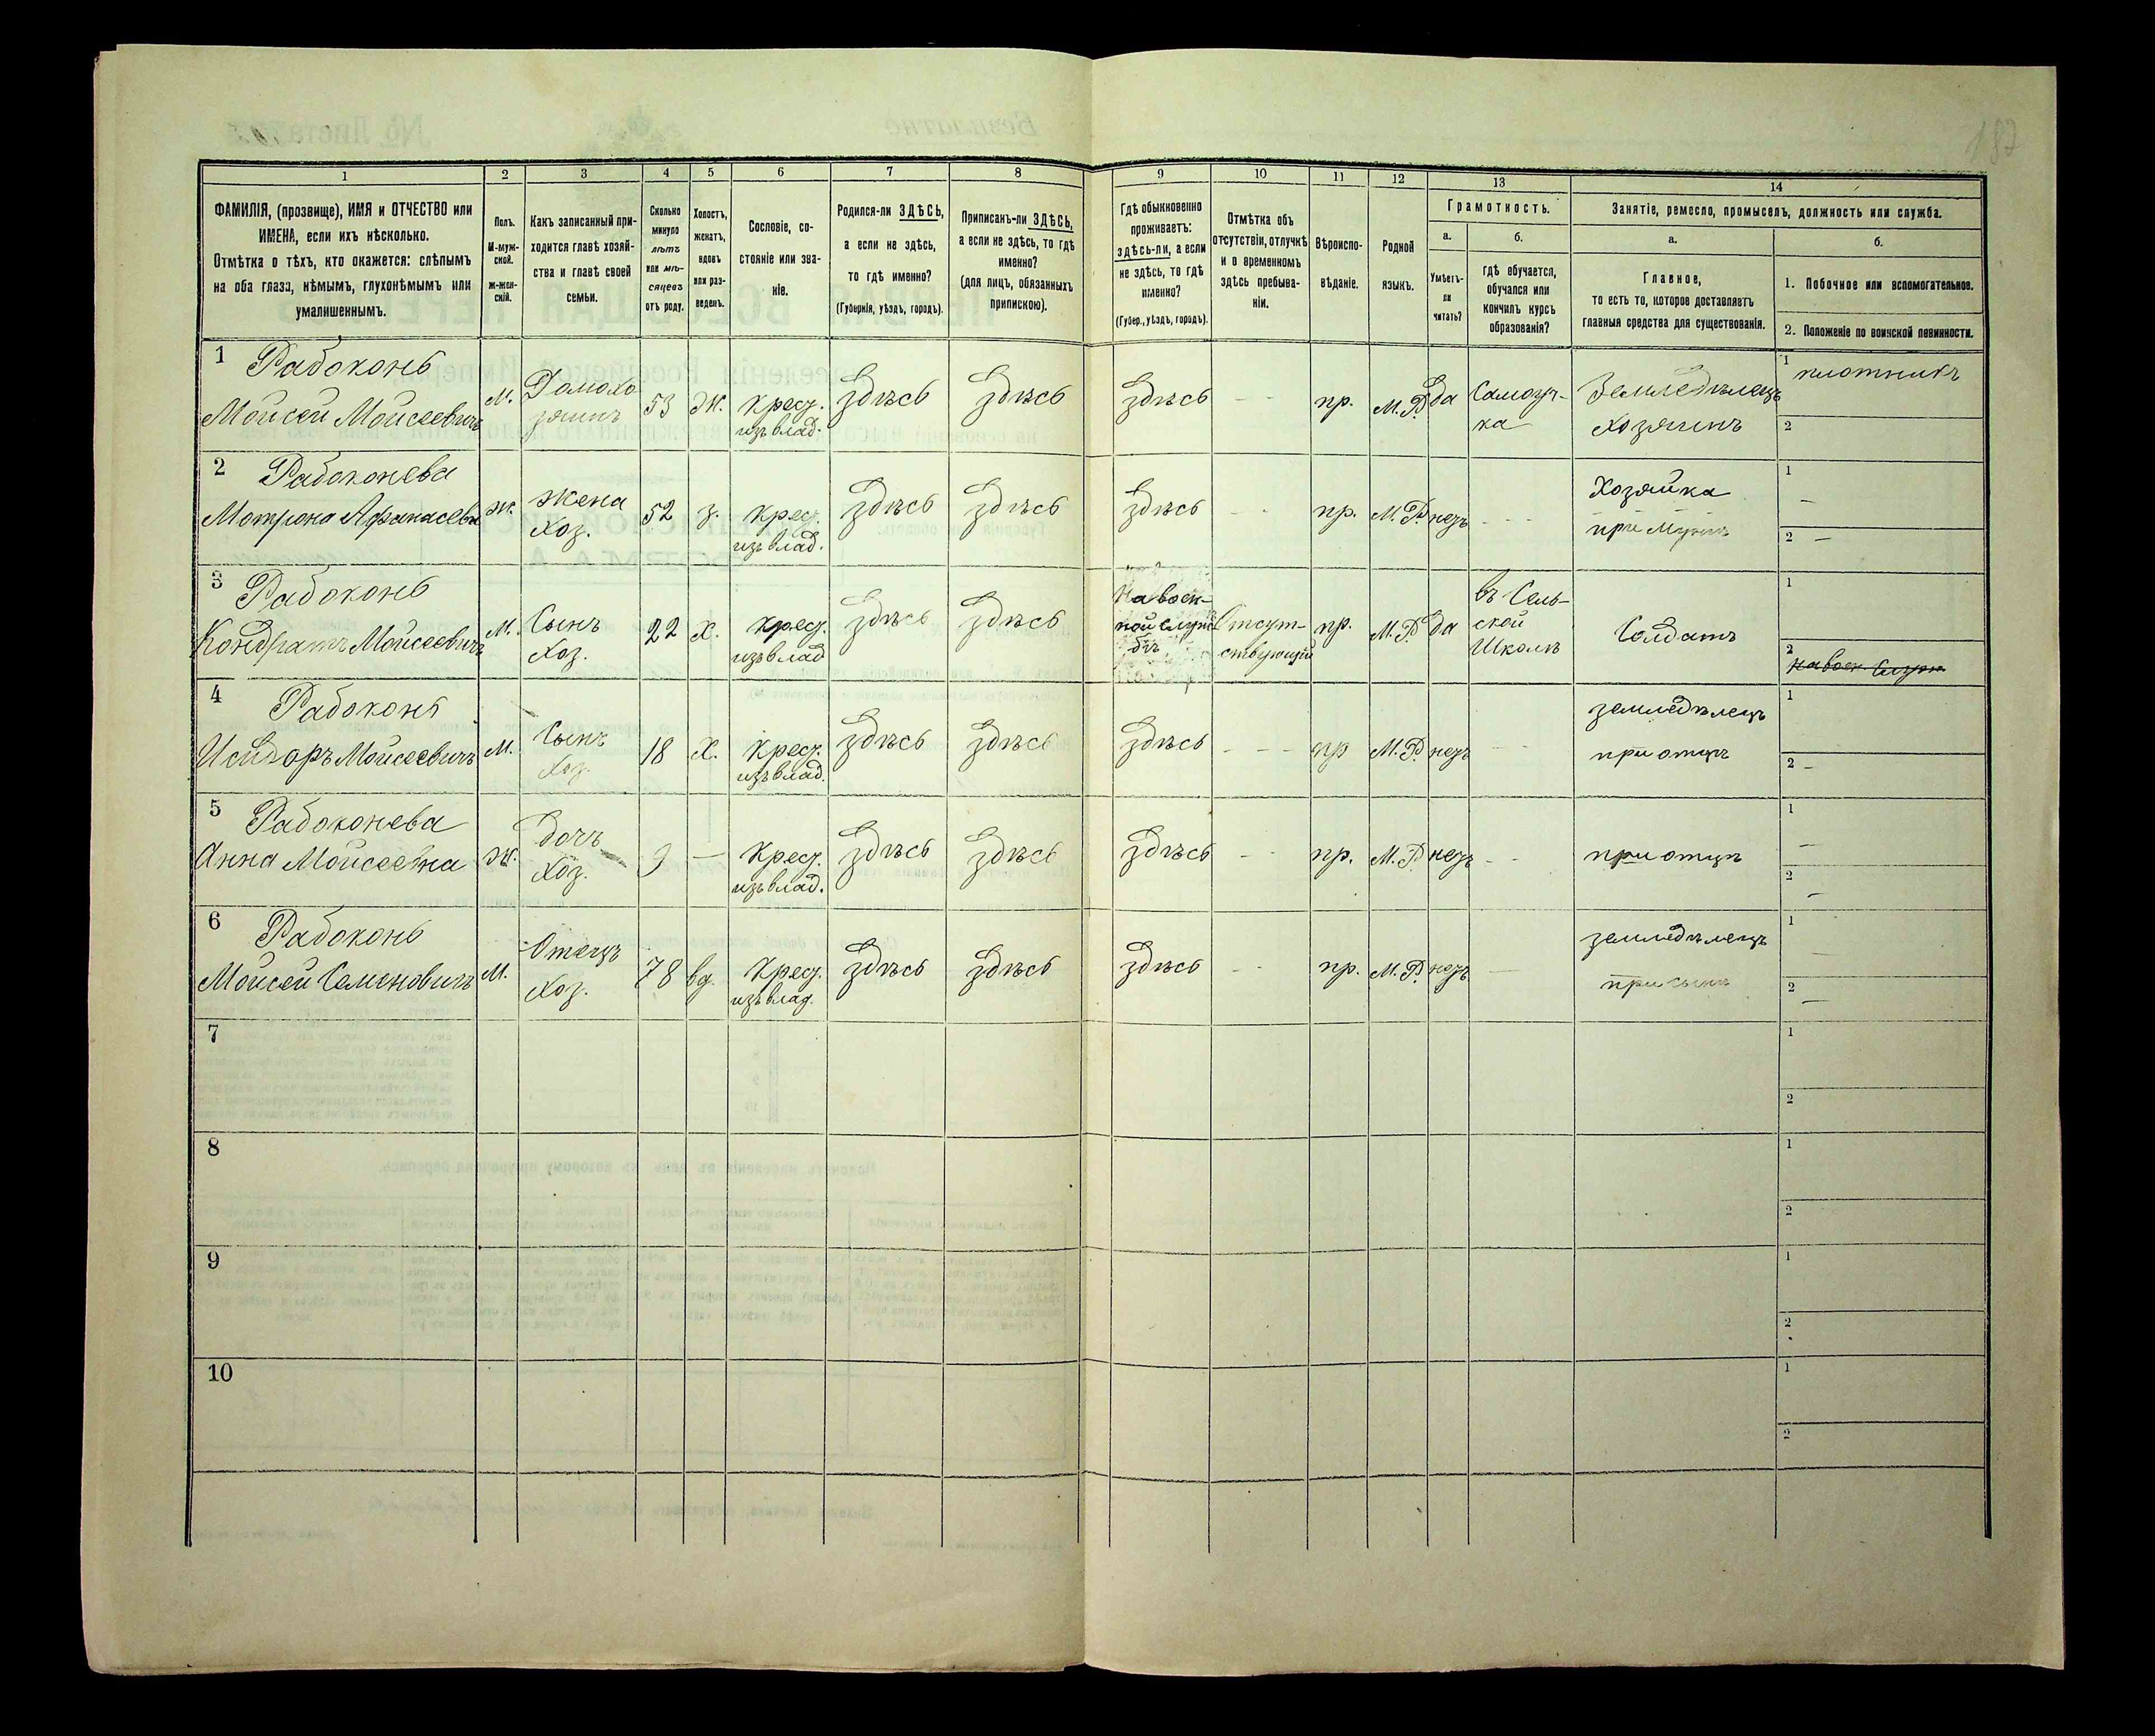 187
1 2 3 4 5 6 7 8 9 10 11 12 13 14
ФАМИЛІЯ, (прозвище), ИМЯ и ОТЧЕСТВО или
ИМЕНА, если ихъ нѣсколько.
Отмѣтка о тѣхъ, кто окажется: слѣпымъ
на оба глаза, нѣмымъ, глухонѣмымъ или
умалишеннымъ.
Полъ.
М-муж-
ской.
Ж-жен-
скій.
Какъ записанный при-
ходится главѣ хозяй-
ства и главѣ своей
семьи.
Сколько
минуло
лѣтъ
или мѣ-
сяцевъ
отъ роду.
Холостъ,
женатъ,
вдовъ
или раз-
веденъ.
Сословіе, со-
стояніе или зва-
ніе.
Родился-ли ЗДѢСЬ,
а если не здѣсь,
то гдѣ именно?
(Губернія, уѣздъ, городъ).
Приписанъ-ли ЗДѢСЬ,
а если не здѣсь, то гдѣ
именно?
(для лицъ, обязанныхъ
припискою).
Гдѣ обыкновенно
проживаетъ:
здѣсь-ли, а если
не здѣсь, то гдѣ
именно?
(Губер., уѣздъ, городъ).
Отмѣтка объ
отсутствіи, отлучкѣ
и о временномъ
здѣсь пребыва-
ніи.
Вѣроиспо-
вѣданіе.
Родной
языкъ.
Грамотность.
а.
Умѣетъ-
ли
читать?
б.
гдѣ обучается,
обучался или
кончилъ курсъ
образованія?
Занятіе, ремесло, промыселъ, должность или служба.
а.
Главное,
то есть то, которое доставляетъ
главныя средства для существованія.
б.
1. Побочное или вспомогательное.
2. Положеніе по воинской повинности.
1 Рабоконь
Моисей Моисеевичъ
М.
Домохо
зяинъ
53
Ж.
Крест.
изъ влад.
Здѣсь
Здѣсь
Здѣсь
- -
пр.
М.Р.
да
Самоуч-
ка
Земледѣлецъ
Хозяинъ
1 плотникъ
2
2 Рабоконева
Мотрона Афанасьева
Ж.
Жена
Хоз.
52
з.
Крест.
изъ влад.
Здѣсь
Здѣсь
Здѣсь
- -
пр.
М.Р.
нѣтъ
- - -
Хозяйка
при мужѣ
1 -
2 -
3 Рабоконь
Кондратъ Моисеевичъ
М.
Сынъ
Хоз.
22
Х.
Крест.
изъ влад
Здѣсь
Здѣсь
На воен-
ной служ
бѣ
Отсут-
ствующій
пр.
М.Р.
да
въ Сель-
ской
Школѣ
Солдатъ
1
2
на воен. служ
4 Рабоконь
Исидоръ Моисеевичъ
М.
Сынъ
Хоз.
18
Х.
Крест.
изъ влад.
Здѣсь
Здѣсь
Здѣсь
- - -
пр
М.Р.
нѣтъ
- -
земледѣлецъ
при отцѣ
1
2 -
5 Рабоконева
Анна Моисеевна
Ж.
Дочь
Хоз.
9
-
Крест.
изъ влад.
Здѣсь
Здѣсь
Здѣсь
- -
пр.
М.Р.
нѣтъ
- -
при отцѣ
1 -
2 -
6 Рабоконь
Моисей Семеновичъ
М.
Отецъ
Хоз.
78
вд.
Крест.
изъ влад.
Здѣсь
Здѣсь
Здѣсь
- -
пр.
М.Р.
нѣтъ
-
земледѣлецъ
при сынѣ
1 -
2 -
7
1
2
8
1
2
9
1
2
10
1
2